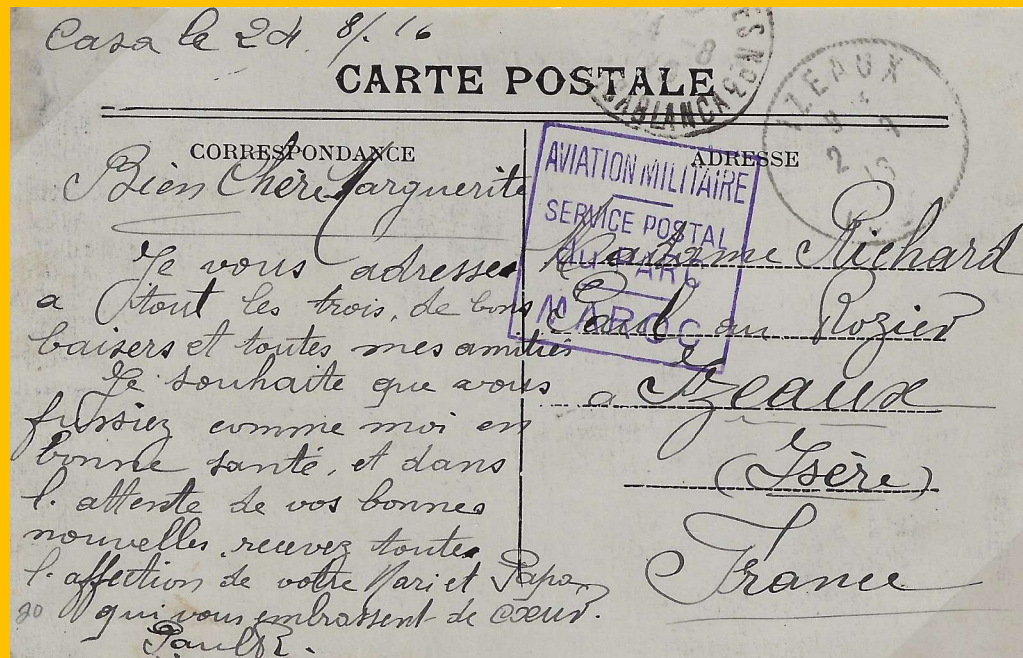 Casa le 24. 8/. 16
CARTE POSTALE
CASABLANCA
IZEAUX
CORRESPONDANCE
ADRESSE
AVIATION MILITAIRE
SERVICE POSTAL
DU PARC
MAROC
Bien Chère Marguerite
Je vous adresse
a tout les trois, de bons
baisers et toutes mes amitiés
Je souhaite que vous
fussiez comme moi en
bonne santé, et dans
l'attente de vos bonnes
nouvelles, recevez toute
l'affection de votre Mari et Papa
qui vous embrassent de cœur.
Paul R.
20
Madame Richard
Paul au Rozier
a Izeaux
(Isère)
France